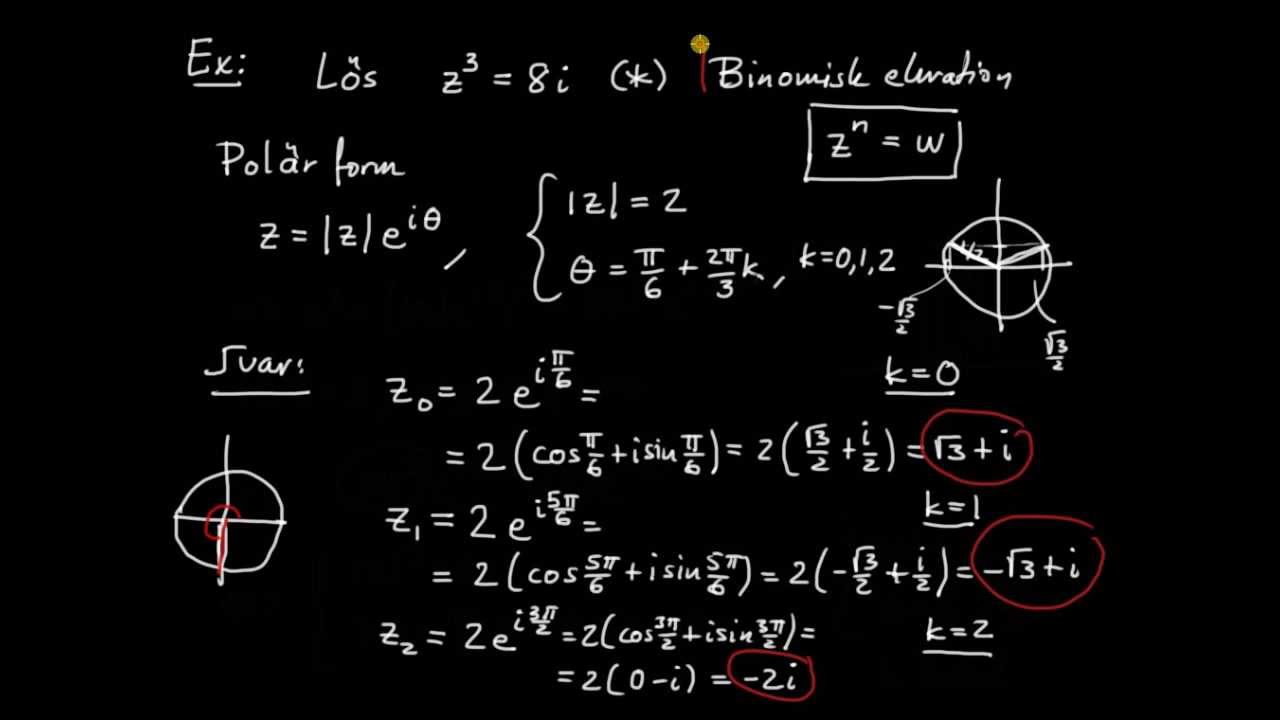 Ex: Lös z³ = 8i (*) | Binomisk ekvation
zⁿ = w
Polär form
z = |z| e^{iθ},
{ |z| = 2
θ = π/6 + 2π/3 k, k=0,1,2
1/2
-√3/2
√3/2
Svar:
z₀ = 2 e^{iπ/6} = k=0
= 2 (cos π/6 + i sin π/6) = 2 (√3/2 + i/2) = √3 + i
z₁ = 2 e^{i5π/6} = k=1
= 2 (cos 5π/6 + i sin 5π/6) = 2 (-√3/2 + i/2) = -√3 + i
z₂ = 2 e^{i3π/2} = 2 (cos 3π/2 + i sin 3π/2) = k=2
= 2 (0 - i) = -2i